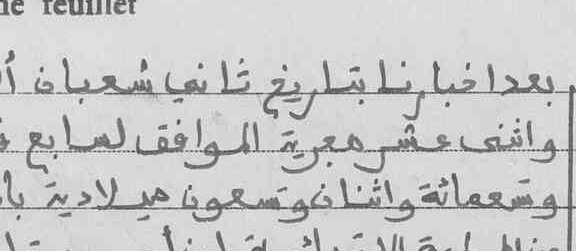 ne feuillet
بعد اخبارنا بتاريخ ثاني شعبان
واثنى عشر هجرية الموافق لسابع
وتسعمائة واثنان وتسعون ميلادية